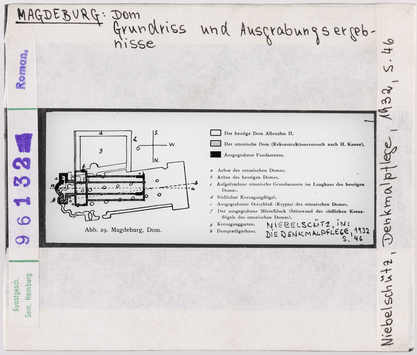 MAGDEBURG: Dom
Grundriss und Ausgrabungsergeb-
nisse
Roman.
96132
Kunstgesch.
Sem. Hamburg
Der heutige Dom Albrechts II.
Der ottonische Dom (Rekonstruktionsversuch nach H. Kunze).
Ausgegrabene Fundamente.
a Achse des ottonischen Domes.
b Achse des heutigen Domes.
c Aufgefundene ottonische Grundmauern im Langhaus des heutigen
Domes.
d Südlicher Kreuzgangflügel.
e Ausgegrabener Ostschluß (Krypta) des ottonischen Domes.
f Der ausgegrabene Mörtelblock (Stirnwand des südlichen Kreuz-
flügels des ottonischen Domes).
g Kreuzganggarten.
h Dompredigerhaus.
Abb. 29. Magdeburg, Dom.
NIEBELSCHÜTZ, IN:
DIE DENKMALPFLEGE, 1932
S. 46
Niebelschütz, Denkmalpflege, 1932, S. 46